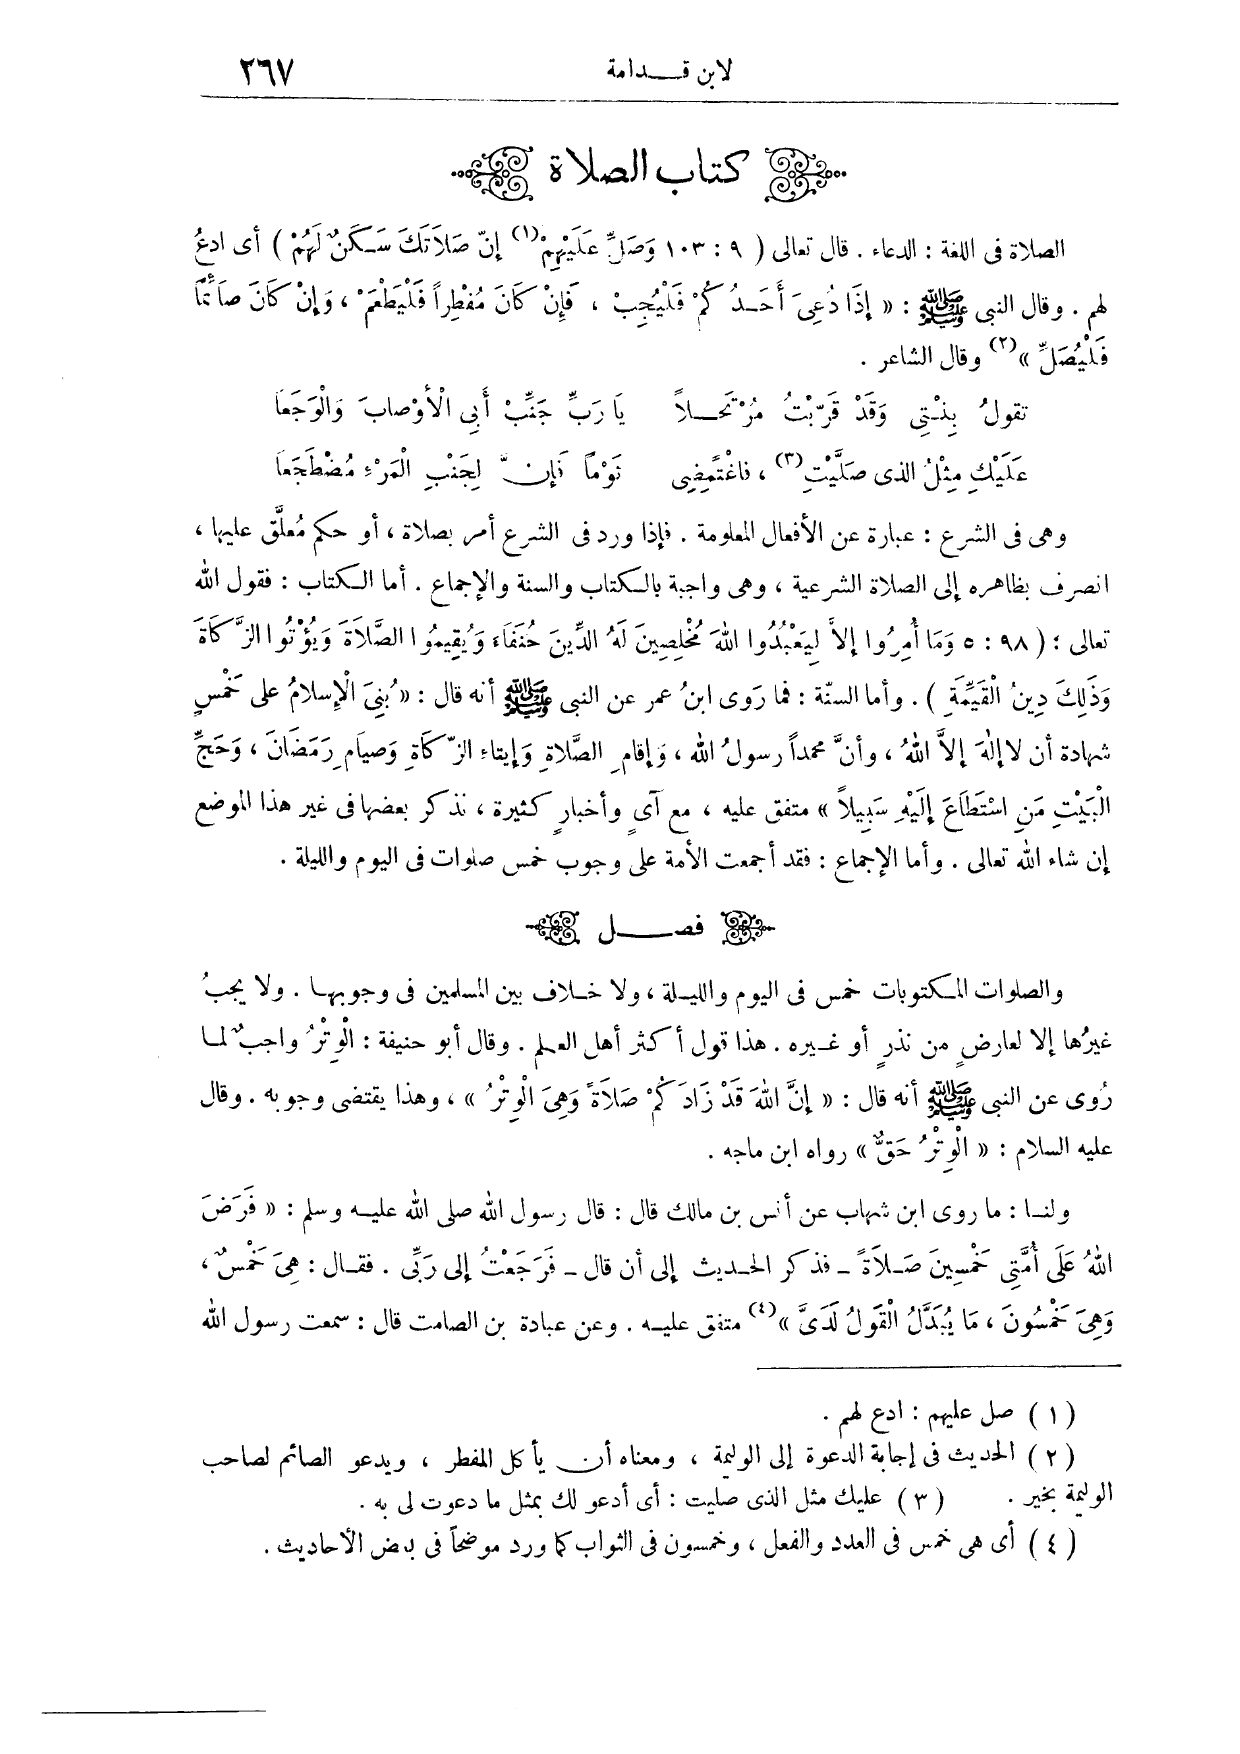 لابن قـــدامة ٢٦٧
كتاب الصلاة
الصلاة فى اللغة : الدعاء . قال تعالى ( ٩ : ١٠٣ وَصَلِّ عَلَيْهِمْ(١) إنّ صَلَاتَكَ سَـكَنٌ لَهُمْ ) أى ادعُ
لهم . وقال النبى ﷺ : « إذَا دُعِىَ أَحَـدُ كُمْ فَلْيُجِبْ ، فَإِنْ كَانَ مُفْطِراً فَلْيَطْعَمْ ، وَإنْ كَانَ صَائِمًا
فَلْيُصَلِّ »(٢) وقال الشاعر .
تقولُ بِنْـتِى وَقَدْ قَرّبْتُ مُرْتَحَـــلاً يَا رَبِّ جَنِّبْ أَبِى الْأوْصابَ وَالْوَجَعاَ
عَلَيْكِ مِثْلُ الذى صَلَّيْتِ(٣) ، فاغْتَمِضِى نَوْماً فَإِنــّ لِجَنْبِ الْمَرْءِ مُضْطَجَعاَ
وهى فى الشرع : عبارة عن الأفعال المعلومة . فإذا ورد فى الشرع أمر بصلاة ، أو حكم مُعلَّق عليها ،
انصرف بظاهره إلى الصلاة الشرعية ، وهى واجبة بالكتاب والسنة والإجماع . أما الكتاب : فقول الله
تعالى : ( ٩٨ : ٥ وَمَا أُمِرُوا إلاَّ لِيَعْبُدُوا اللهَ مُخْلِصِينَ لَهُ الدِّينَ حُنَفَاءَ وَيُقِيمُوا الصَّلَاةَ وَيُؤْتُوا الزَّ كَاةَ
وَذَلِكَ دِينُ الْقَيِّمَةِ ) . وأما السنّة : فما رَوى ابنُ عمر عن النبى ﷺ أنه قال : « بُنِىَ الْإسلامُ على خَمْسٍ
شهادة أن لا إلَهَ إلاَّ اللهُ ، وأنَّ محمداً رسولُ الله ، وَإقامِ الصَّلاةِ وَإيتاءِ الزّ كَاةِ وَصِيامِ رَمَضَانَ ، وَحَجِّ
الْبَيْتِ مَنِ اسْتَطَاعَ إلَيْهِ سَبِيلاً » متفق عليه ، مع آىٍ وأخبارٍ كثيرة ، نذكر بعضها فى غير هذا الموضع
إن شاء الله تعالى . وأما الإجماع : فقد أجمعت الأمة على وجوب خمس صلوات فى اليوم والليلة .
فصـــل
والصلوات المكتوبات خمس فى اليوم والليـلة ، ولا خـلاف بين المسلمين فى وجوبهـا . ولا يجبُ
غيرُها إلا لعارضٍ من نذرٍ أو غـيره . هذا قول أكثر أهل العلم . وقال أبو حنيفة : الْوِتْرُ واجبٌ لمـا
رُوى عن النبى ﷺ أنه قال : « إنَّ اللهَ قَدْ زَادَ كُمْ صَلاَةً وَهِىَ الْوِتْرُ » ، وهذا يقتضى وجوبه . وقال
عليه السلام : « الْوِتْرُ حَقٌّ » رواه ابن ماجه .
ولنـا : ما روى ابن شهاب عن أنس بن مالك قال : قال رسول الله صلى الله عليـه وسلم : « فَرَضَ
اللهُ عَلَى أُمَّتِى خَمْسِينَ صَـلاَةً ــ فذكر الحـديث إلى أن قال ــ فَرَجَعْتُ إلى رَبِّى . فقـال : هِىَ خَمْسٌ ،
وَهِىَ خَمْسُونَ ، مَا يُبَدَّلُ الْقَوْلُ لَدَىَّ »(٤) متفق عليـه . وعن عبادة بن الصامت قال : سمعت رسول الله
( ١ ) صل عليهم : ادع لهم .
( ٢ ) الحديث فى إجابة الدعوة إلى الوليمة ، ومعناه أن يأكل المفطر ، ويدعو الصائم لصاحب
الوليمة بخير . ( ٣ ) عليك مثل الذى صليت : أى أدعو لك بمثل ما دعوت لى به .
( ٤ ) أى هى خمس فى العدد والفعل ، وخمسون فى الثواب كما ورد موضحاً فى بعض الأحاديث .